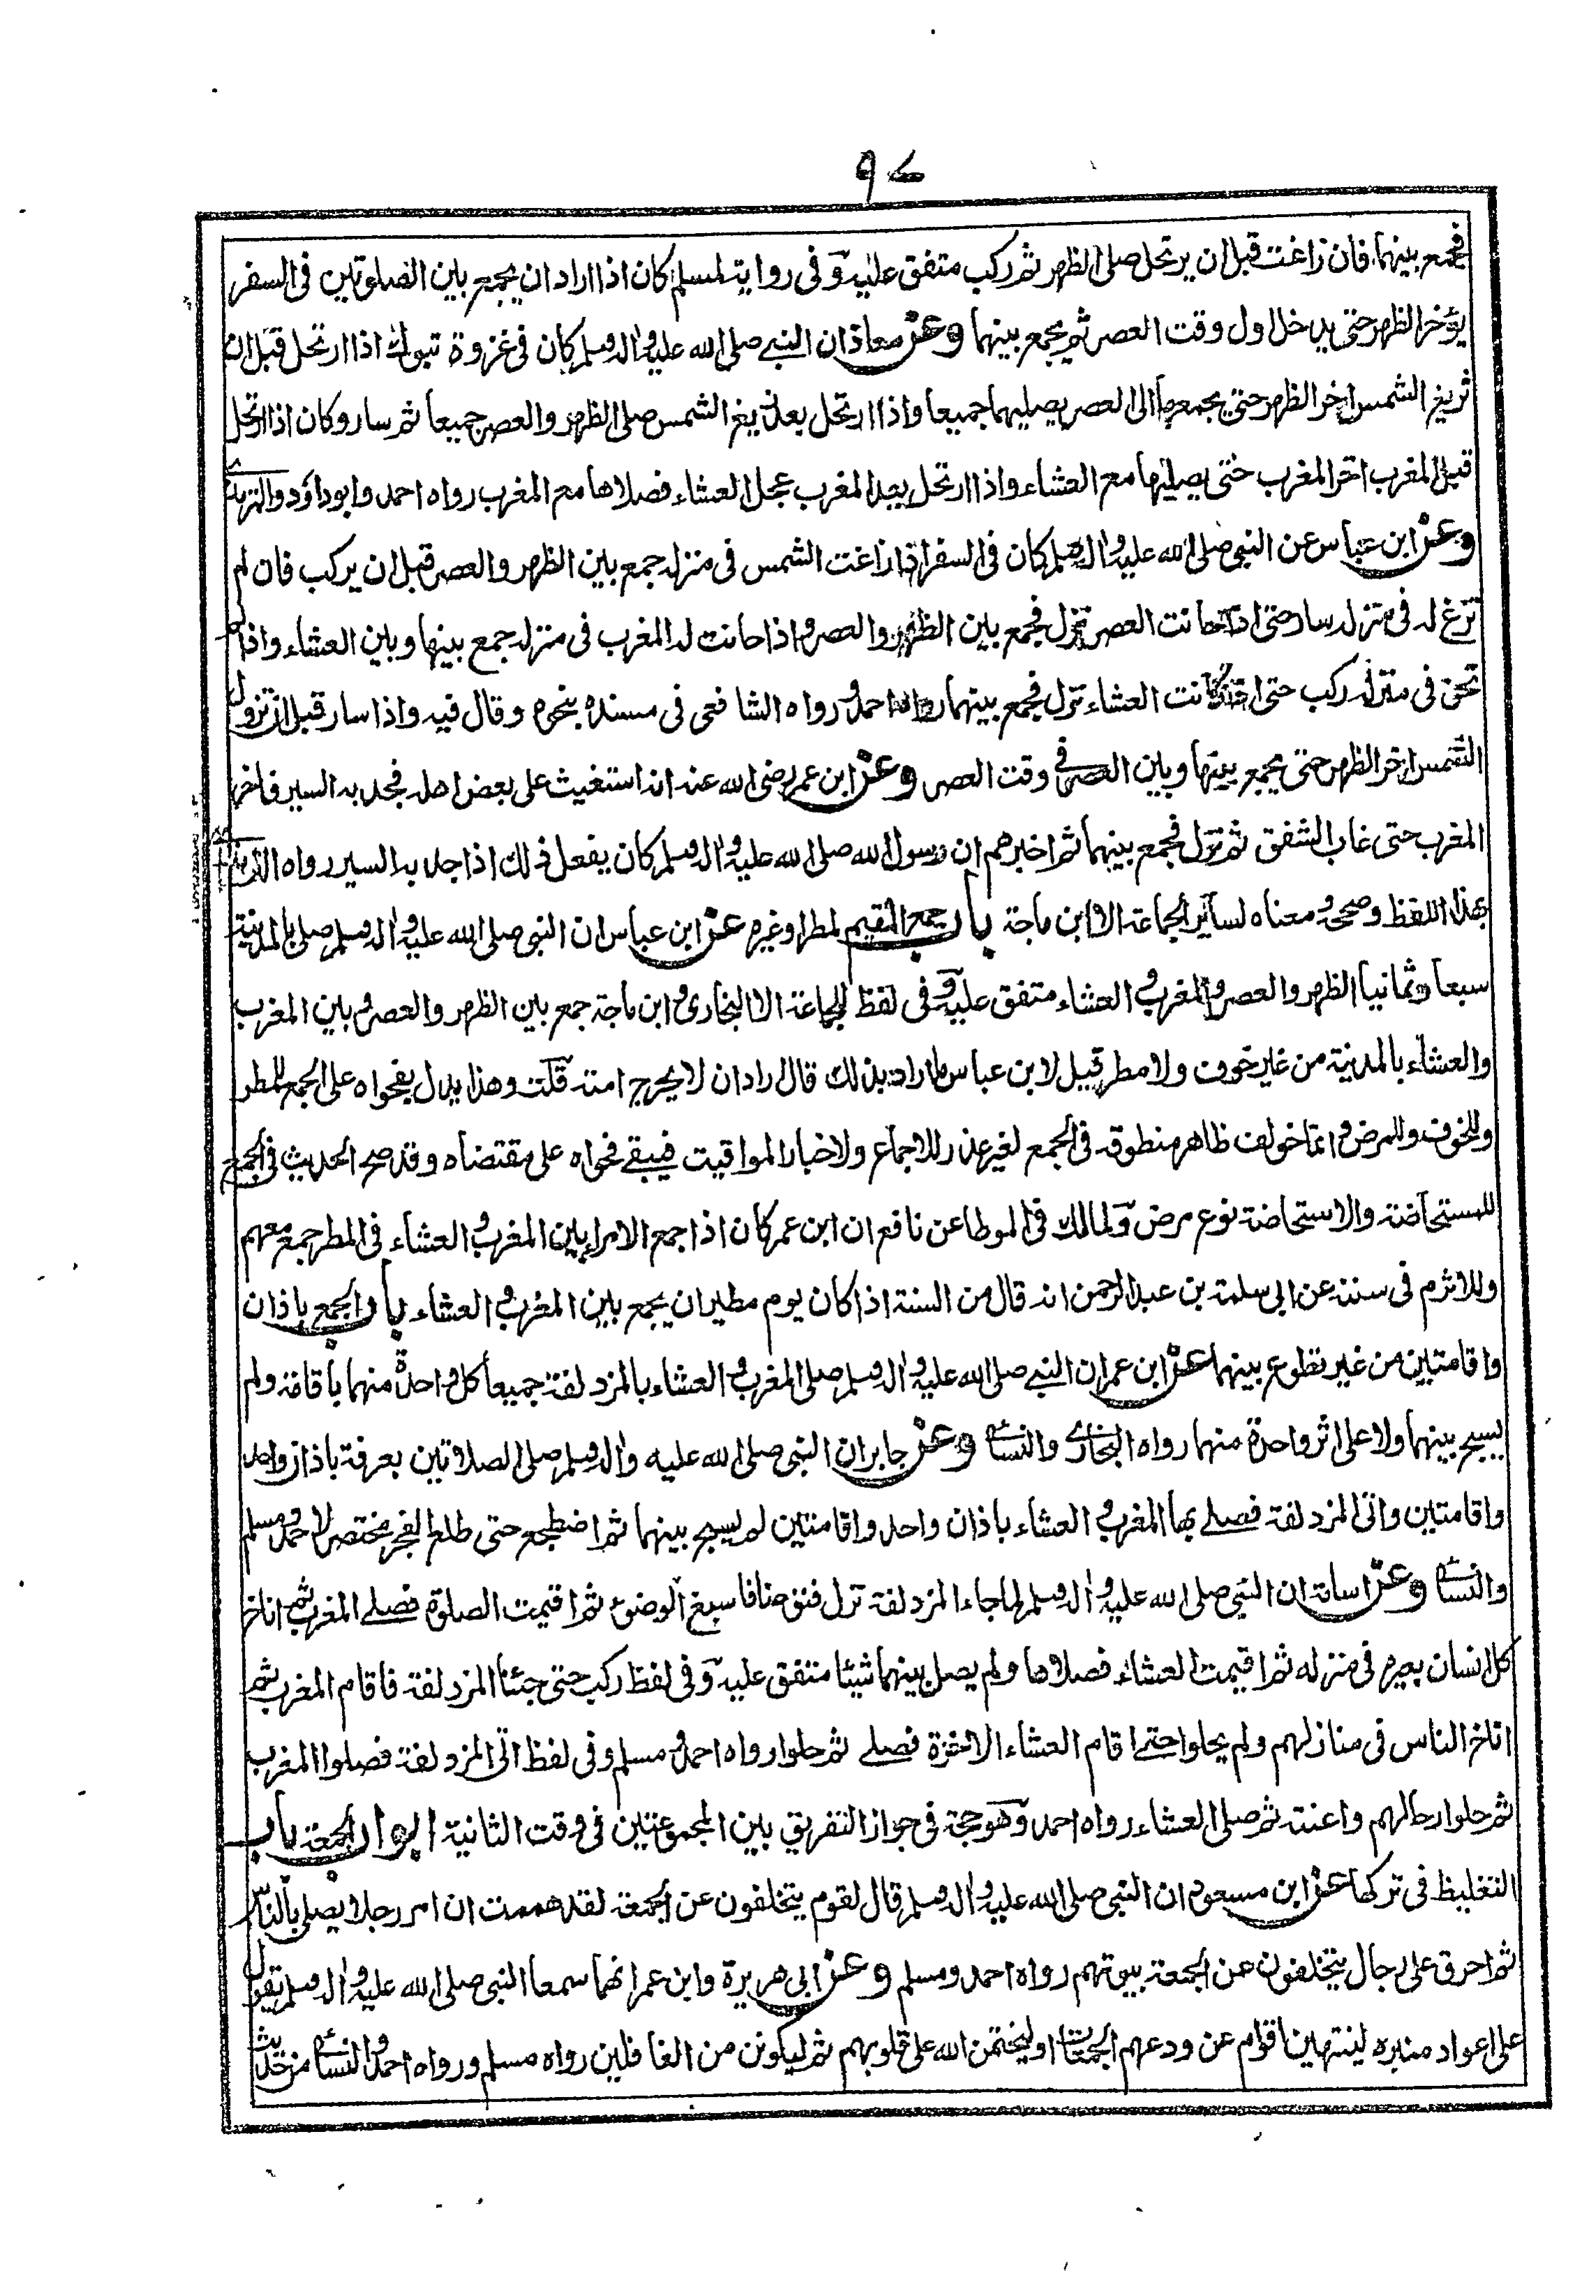 ٩٧
فجمع بينهما، فان زاغت قبل ان يرتحل صلى الظهر ثم ركب متفق عليه وفى رواية لمسلم كان اذا اراد ان يجمع بين الصلوتين فى السفر
يؤخر الظهر حتى يدخل اول وقت العصر ثم يجمع بينهما وعن معاذ ان النبے صلى الله عليه واله وسلم كان فى غزوة تبوك اذا ارتحل قبل ان
تزيغ الشمس اخر الظهر حتى يجمعها الى العصر يصليهما جميعا واذا ارتحل بعد زيغ الشمس صلى الظهر والعصر جميعا ثم سار وكان اذا ارتحل
قبل المغرب اخر المغرب حتى يصليها مع العشاء واذا ارتحل بعد المغرب عجل العشاء فصلاها مع المغرب رواه احمد وابوداؤد والترمذے
وعن ابن عباس عن النبى صلى الله عليه واله وسلم كان فى السفر اذا زاغت الشمس فى منزله جمع بين الظهر والعصر قبل ان يركب فان لم
تزغ له فى منزله سار حتى اذا حانت العصر نزل فجمع بين الظهر والعصر واذا حانت له المغرب فى منزله جمع بينها وبين العشاء واذا لم
تحن فى منزله ركب حتى اذا كانت العشاء نزل فجمع بينهما رواه احمد ورواه الشافعى فى مسنده بنحوه وقال فيه واذا سار قبل ان تزول
الشمس اخر الظهر حتى يجمع بينها وبين العصر فى وقت العصر وعن ابن عمر رضى الله عنه انه استغيث على بعض اهله فجد به السير فاخر
المغرب حتى غاب الشفق ثم نزل فجمع بينهما ثم اخبرهم ان رسول الله صلى الله عليه واله وسلم كان يفعل ذلك اذا جد به السير رواه الترمذے
بهذا اللفظ وصححه ومعناه لسائر الجماعة الا ابن ماجة باب جمع المقيم لمطر او غيره عن ابن عباس ان النبى صلى الله عليه واله وسلم صلى بالمدينة
سبعا وثمانيا الظهر والعصر والمغرب والعشاء متفق عليه وفى لفظ للجماعة الا البخارى وابن ماجة جمع بين الظهر والعصر وبين المغرب
والعشاء بالمدينة من غير خوف ولا مطر قيل لابن عباس ما اراد بذلك قال اراد ان لا يحرج امته قلت وهذا يدل بفحواه على الجمع للمطر
وللخوف وللمرض وانما خولف ظاهر منطوقه فى الجمع لغير عذر للاجماع ولاخبار المواقيت فيبقے فحواه على مقتضاه وقد صح الحديث فى الجمع
للمستحاضة والاستحاضة نوع مرض ولمالك فى الموطا عن نافع ان ابن عمر كان اذا جمع الامراء بين المغرب والعشاء فى المطر جمع معهم
وللاثرم فى سننه عن ابى سلمة بن عبد الرحمن انه قال من السنة اذا كان يوم مطير ان يجمع بين المغرب والعشاء باب الجمع باذان
واقامتين من غير تطوع بينهما عن ابن عمر ان النبے صلى الله عليه واله وسلم صلى المغرب والعشاء بالمزدلفة جميعا كل واحدة منهما باقامة ولم
يسبح بينهما ولا على اثر واحدة منهما رواه البخارے والنسائے وعن جابر ان النبى صلى الله عليه واله وسلم صلى الصلاتين بعرفة باذان واحد
واقامتين واتى المزدلفة فصلے بها المغرب والعشاء باذان واحد واقامتين لم يسبح بينهما ثم اضطجع حتى طلع الفجر مختصر لاحمد ومسلم
والنسائے وعن اسامة ان النبى صلى الله عليه واله وسلم لما جاء المزدلفة نزل فتوضا فاسبغ الوضوء ثم اقيمت الصلوة فصلے المغرب ثم اناخ
كل انسان بعيره فى منزله ثم اقيمت العشاء فصلاها ولم يصل بينهما شيئا متفق عليه وفى لفظ ركب حتى جئنا المزدلفة فاقام المغرب ثم
اناخ الناس فى منازلهم ولم يحلوا حتے اقام العشاء الاخرة فصلے ثم حلوا رواه احمد ومسلم وفى لفظ اتى المزدلفة فصلوا المغرب
ثم حلوا رحالهم واعنته ثم صلى العشاء رواه احمد وهو حجة فى جواز التفريق بين المجموعتين فى وقت الثانية ابواب الجمعة باب
التغليظ فى تركها عن ابن مسعود ان النبى صلى الله عليه واله وسلم قال لقوم يتخلفون عن الجمعة لقد هممت ان امر رجلا يصلى بالناس
ثم احرق على رجال يتخلفون عن الجمعة بيوتهم رواه احمد ومسلم وعن ابى هريرة وابن عمر انهما سمعا النبى صلى الله عليه واله وسلم يقول
على اعواد منبره لينتهين اقوام عن ودعهم الجمعات او ليختمن الله على قلوبهم ثم ليكونن من الغافلين رواه مسلم ورواه احمد والنسائے من حديث